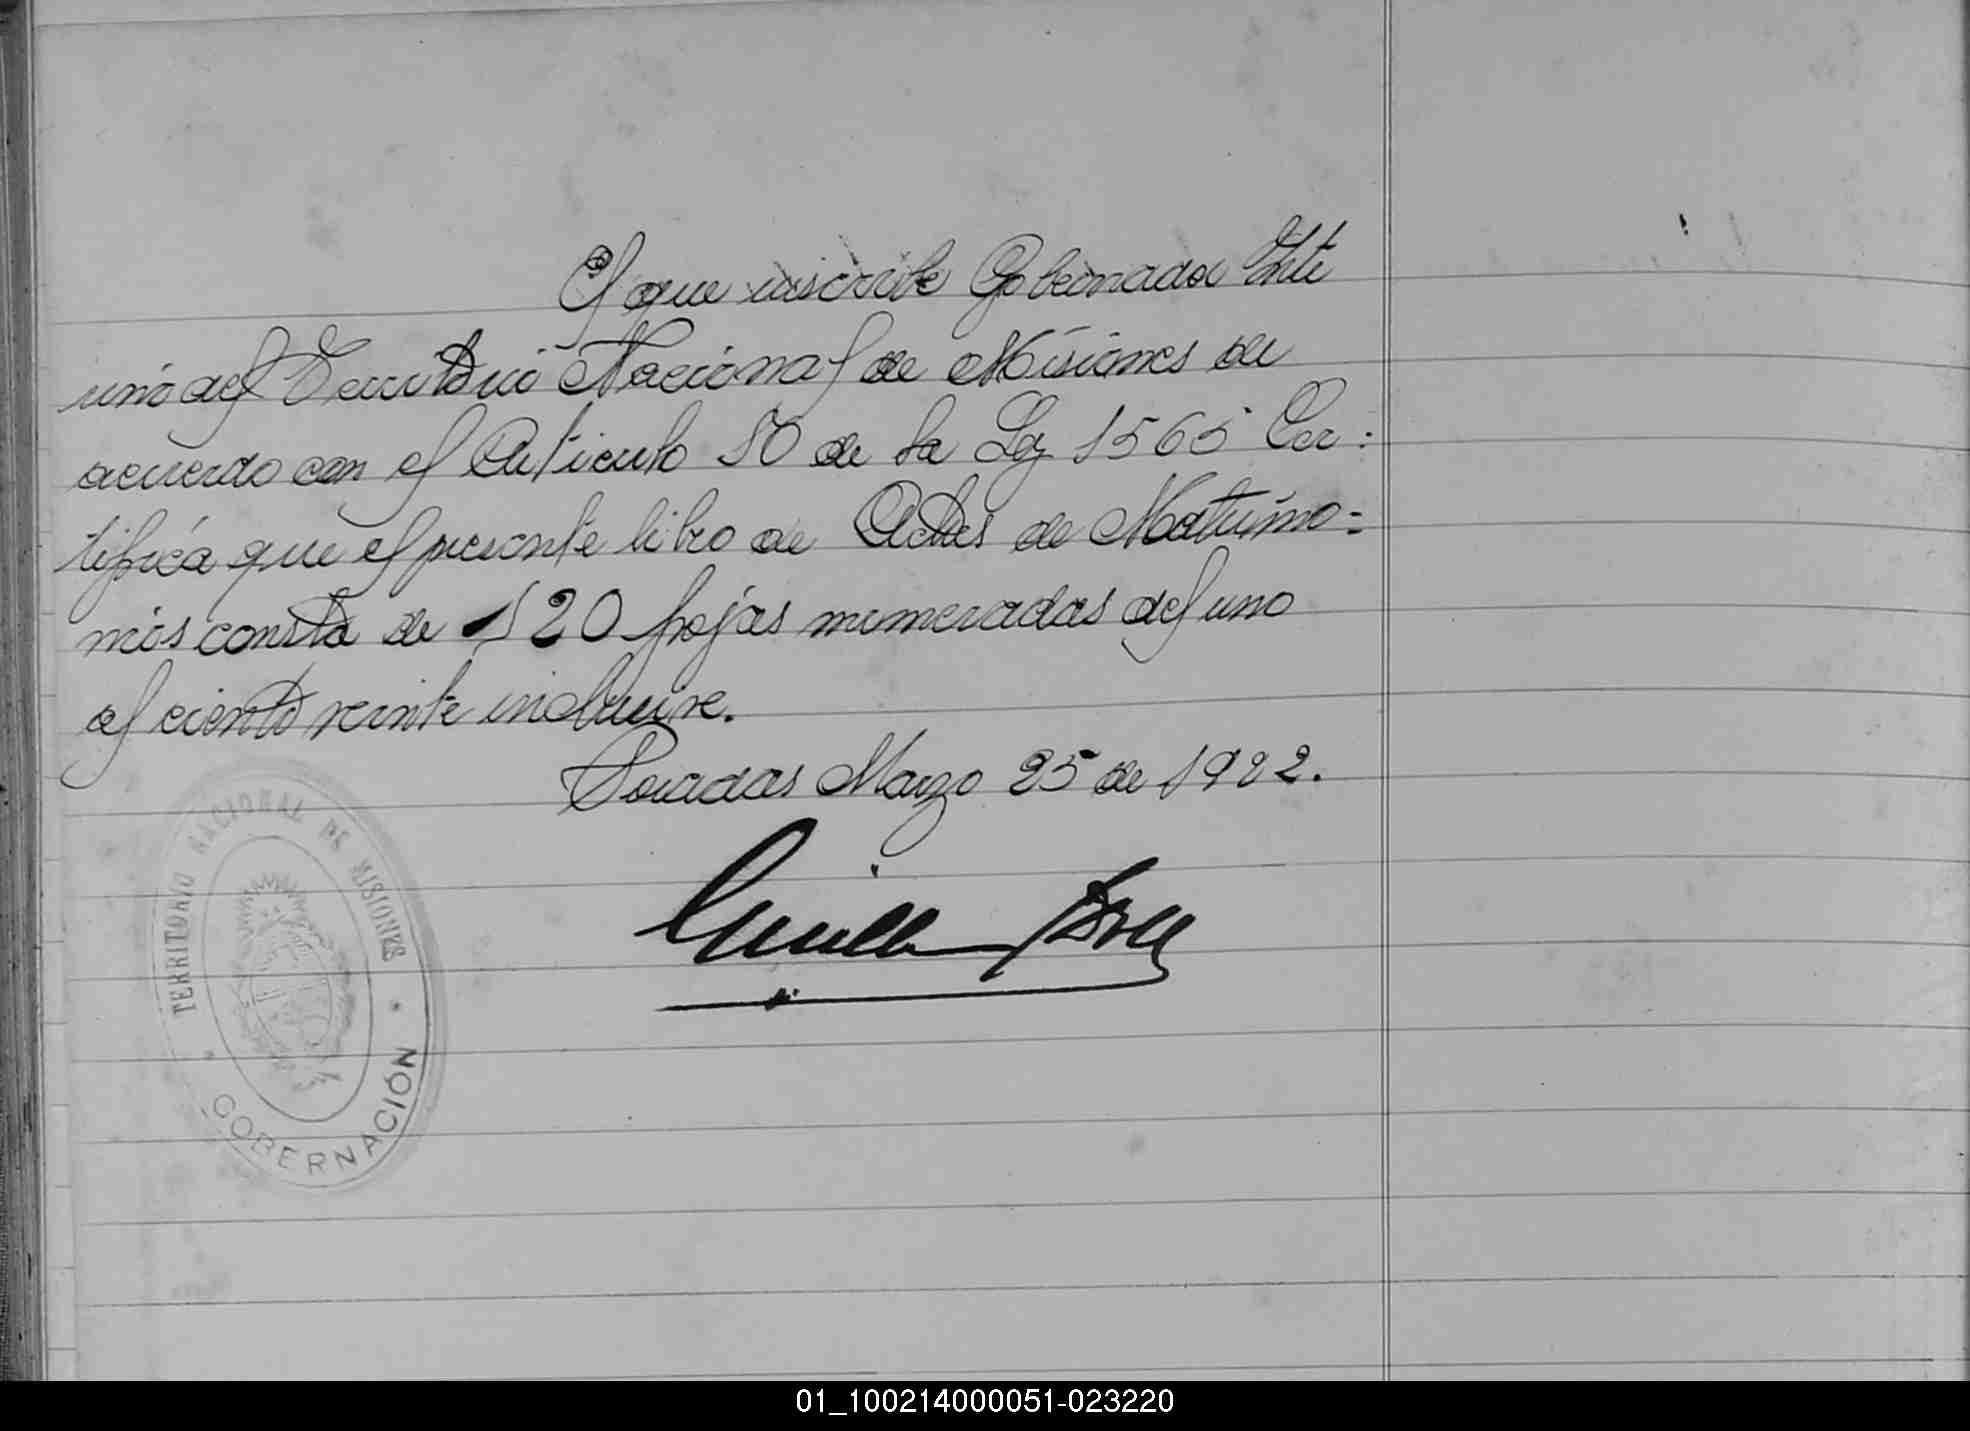 El que suscribe Gobernador Inte
rino del Territorio Nacional de Misiones de
acuerdo con el Articulo 50 de la Ley 1565 Cer:
tifica que el presente libro de Actas de Matrimo=
nios consta de 120 hojas numeradas del uno
al ciento veinte inclusive.
Posadas Marzo 25 de 1922.
TERRITORIO NACIONAL DE MISIONES
GOBERNACIÓN
01_100214000051-023220